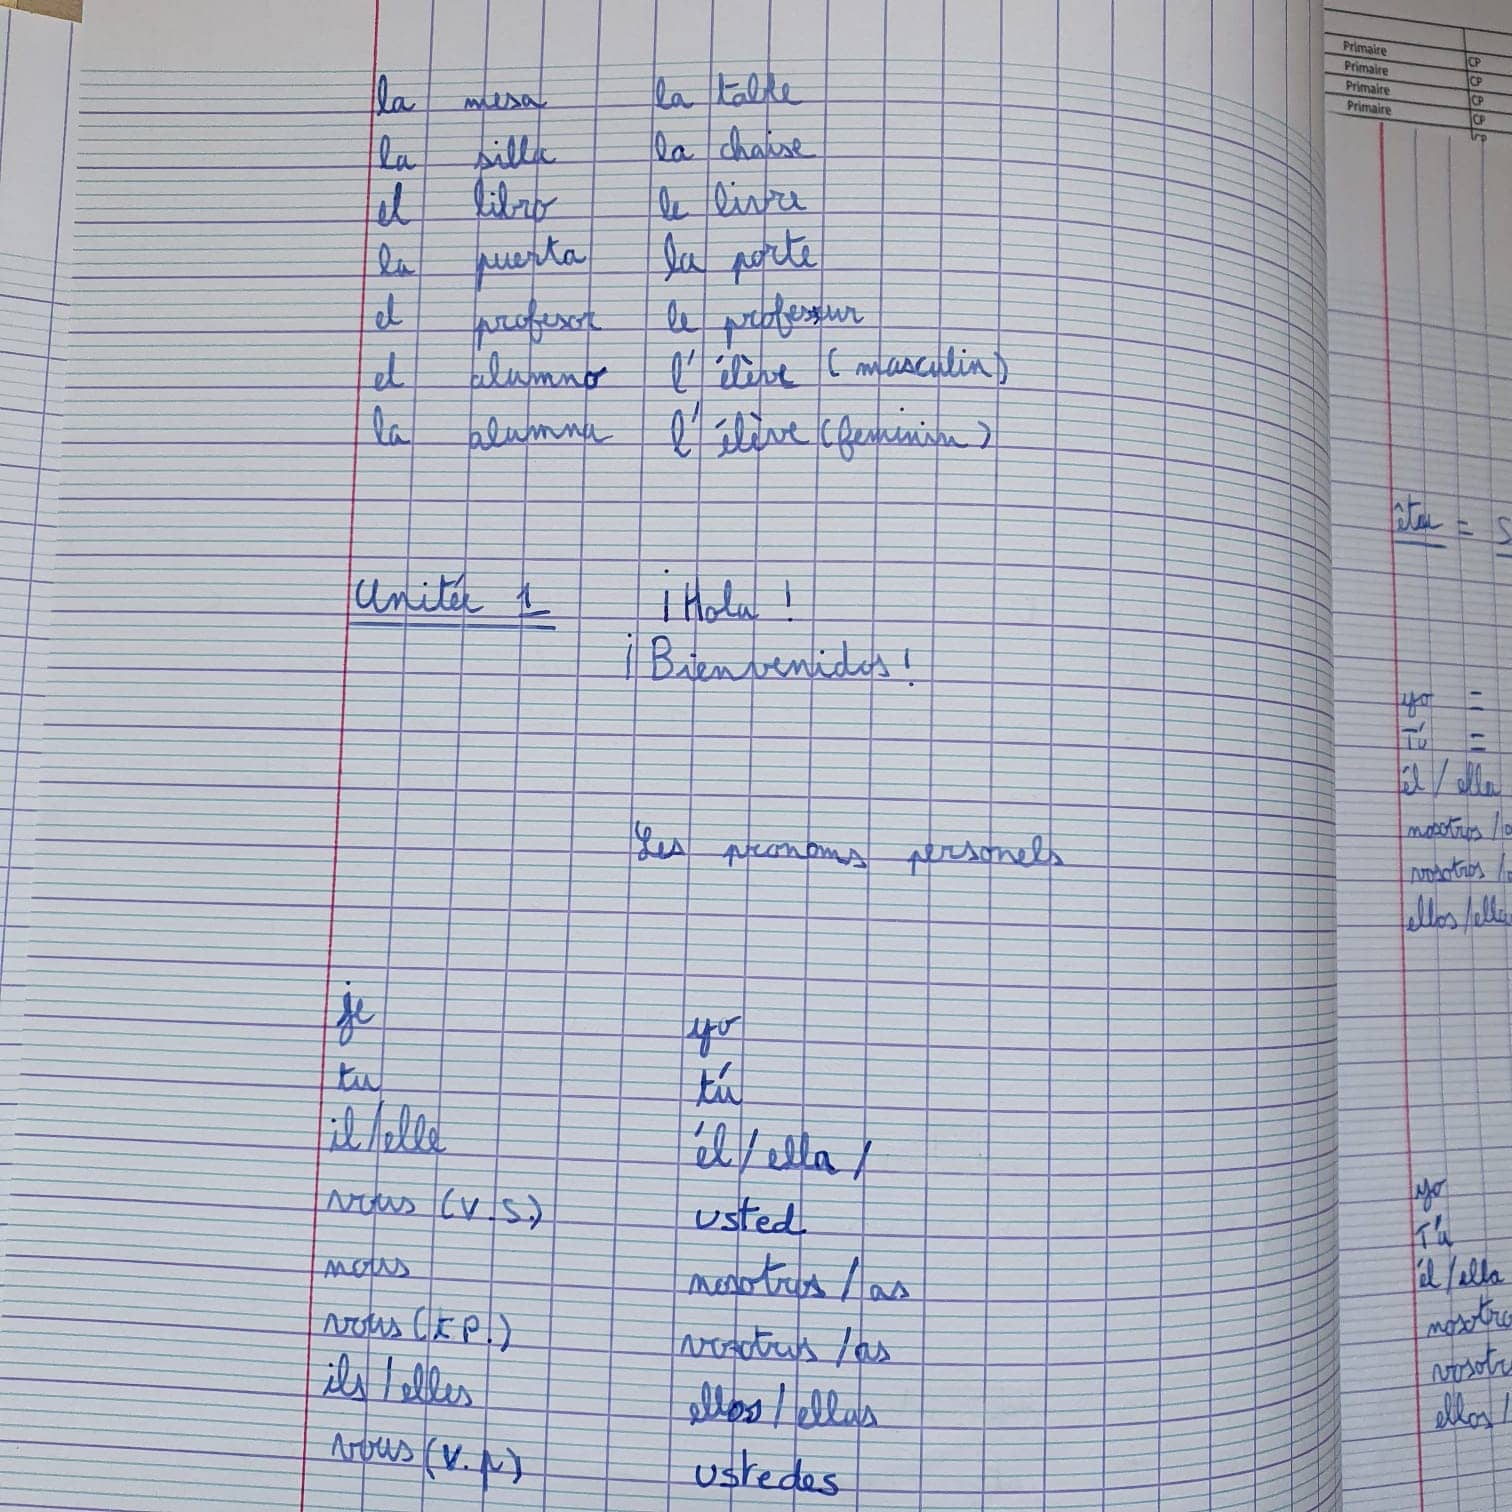 la mesa la table
la silla la chaise
el libro le livre
la puerta la porte
el profesor le professeur
el alumno l'élève (masculin)
la alumna l'élève (feminin)
Unitée 1 ¡Hola!
¡Bienvenidos!
Les pronoms personels
je yo
tu tú
il/elle él/ella/
vous (v.s.) usted
nous nosotros/as
vous (t p.) vosotros/as
ils/elles ellos/ellas
vous (v.p) ustedes
Primaire CP
Primaire CP
Primaire CP
Primaire CP
CP
être = S
yo =
Tú =
él/ella
nosotros/o
vosotros/o
ellos/ella
yo
Tú
él/ella
nosotro
vosotr
ellos/